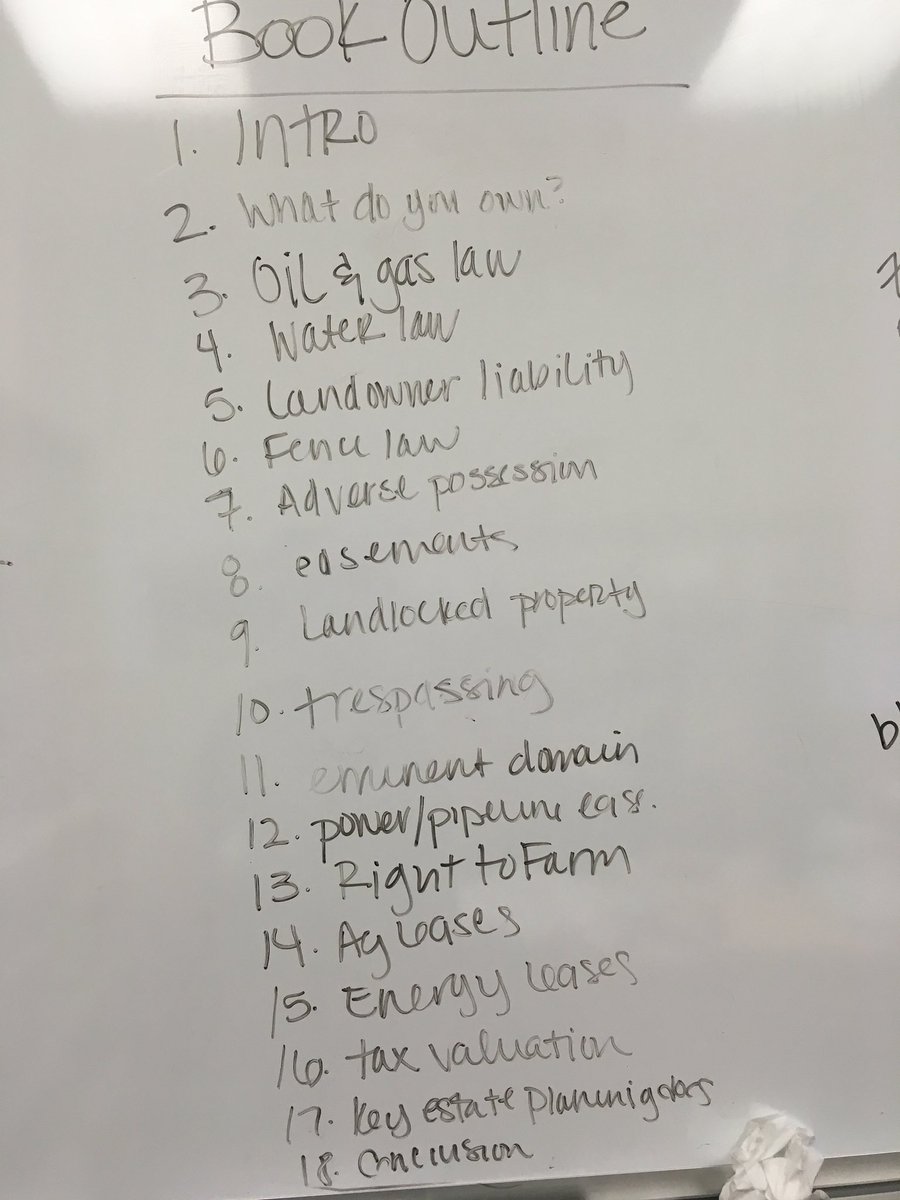 Book Outline
1. Intro
2. What do you own?
3. Oil & gas law
4. Water law
5. Landowner liability
6. Fence law
7. Adverse possession
8. easements
9. Landlocked property
10. trespassing
11. eminent domain
12. power/pipeline eas.
13. Right to Farm
14. Ag leases
15. Energy leases
16. tax valuation
17. Key estate planning docs
18. Conclusion